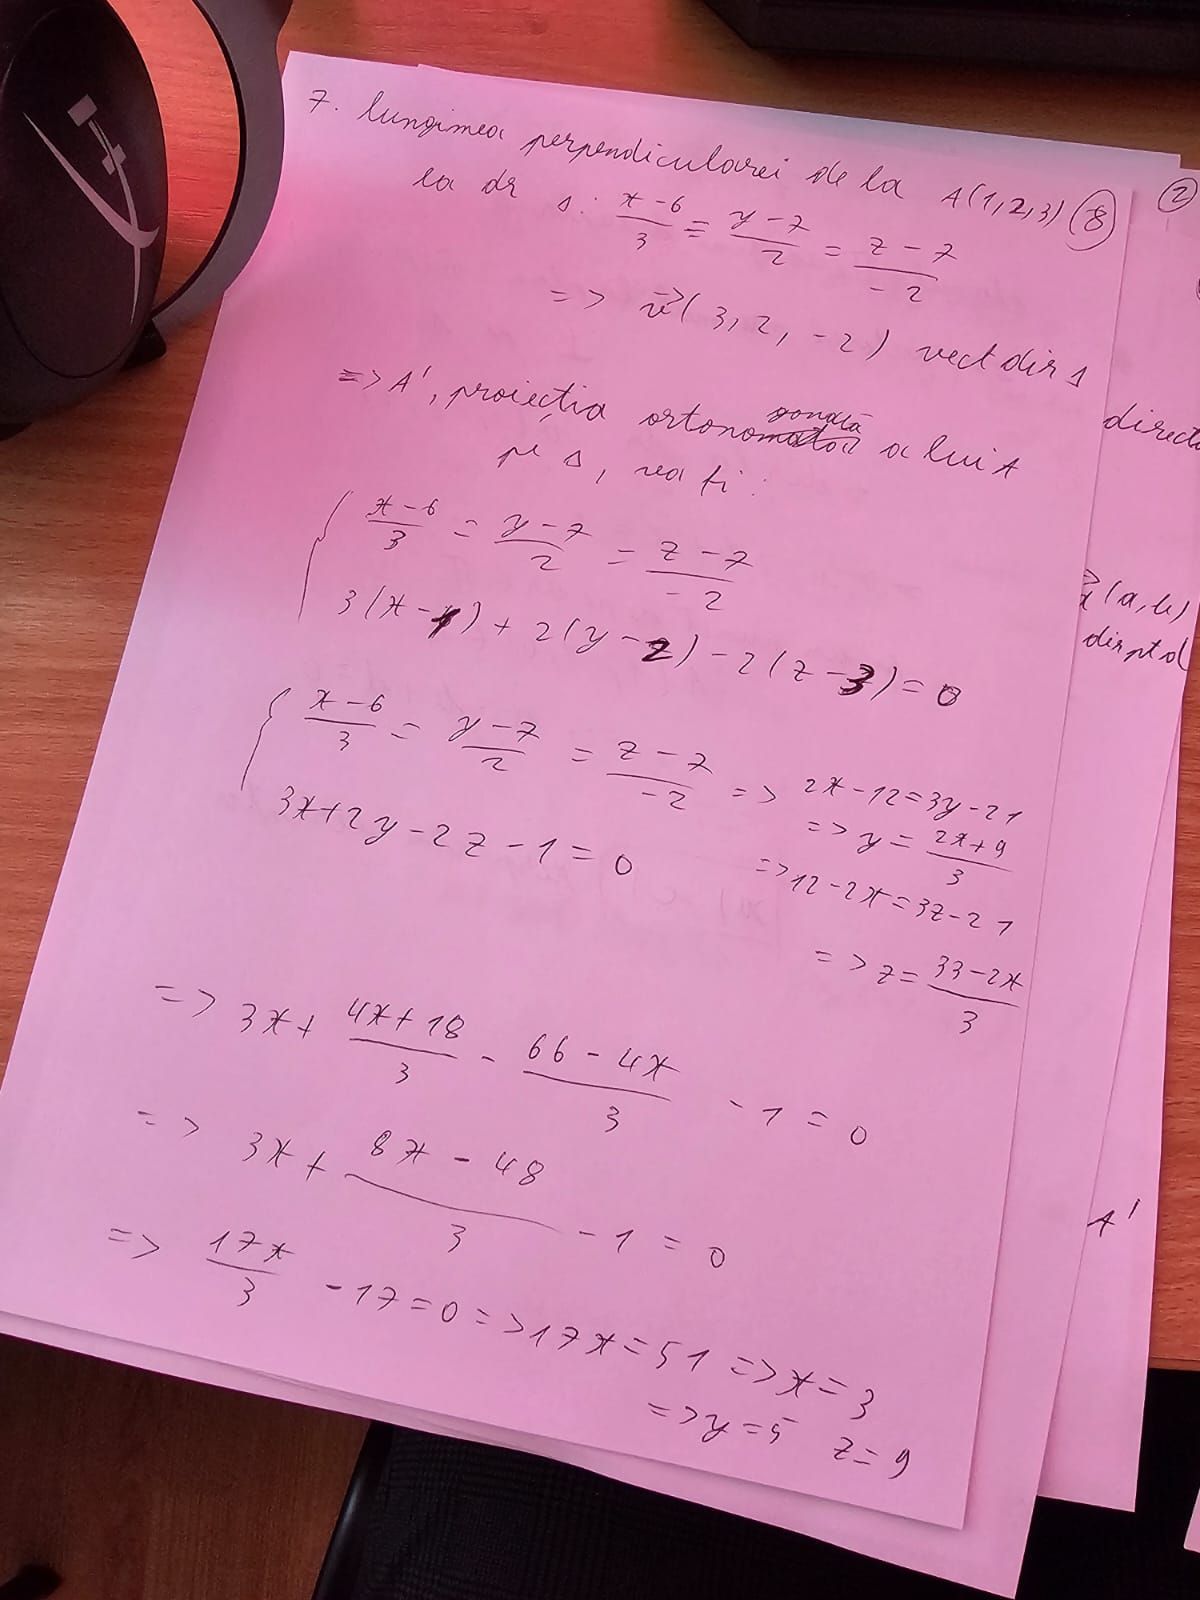 7. lungimea perpendicularei de la A(1,2,3) 8
la dr s: x-6/3 = y-7/2 = z-7/-2
=> v(3, 2, -2) vect dir s
=> A', proiecția ortonogonală a lui A
pe s, va fi:
x-6/3 = y-7/2 = z-7/-2
3(x-1) + 2(y-2) - 2(z-3) = 0
x-6/3 = y-7/2 = z-7/-2 => 2x-12=3y-21
=> y = 2x+9/3
3x+2y-2z-1=0
=> 12-2x=3z-21
=> z = 33-2x/3
=> 3x + 4x+18/3 - 66-4x/3 - 1 = 0
=> 3x + 8x-48/3 - 1 = 0
=> 17x/3 - 17 = 0 => 17x = 51 => x = 3
=> y = 5 z = 9
2
(a,b)
A'